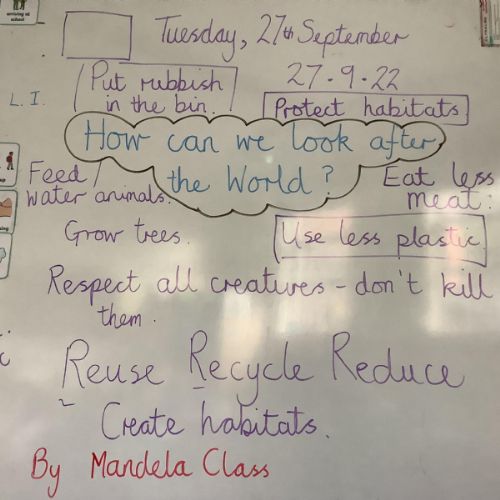 arriving at school
Tuesday, 27th September
27.9.22
L.I.
Put rubbish
in the bin.
Protect habitats
How can we look after
the World?
Feed/
water animals.
Eat less
meat.
Grow trees.
Use less plastic
Respect all creatures - don't kill
them.
Reuse Recycle Reduce
Create habitats.
By Mandela Class